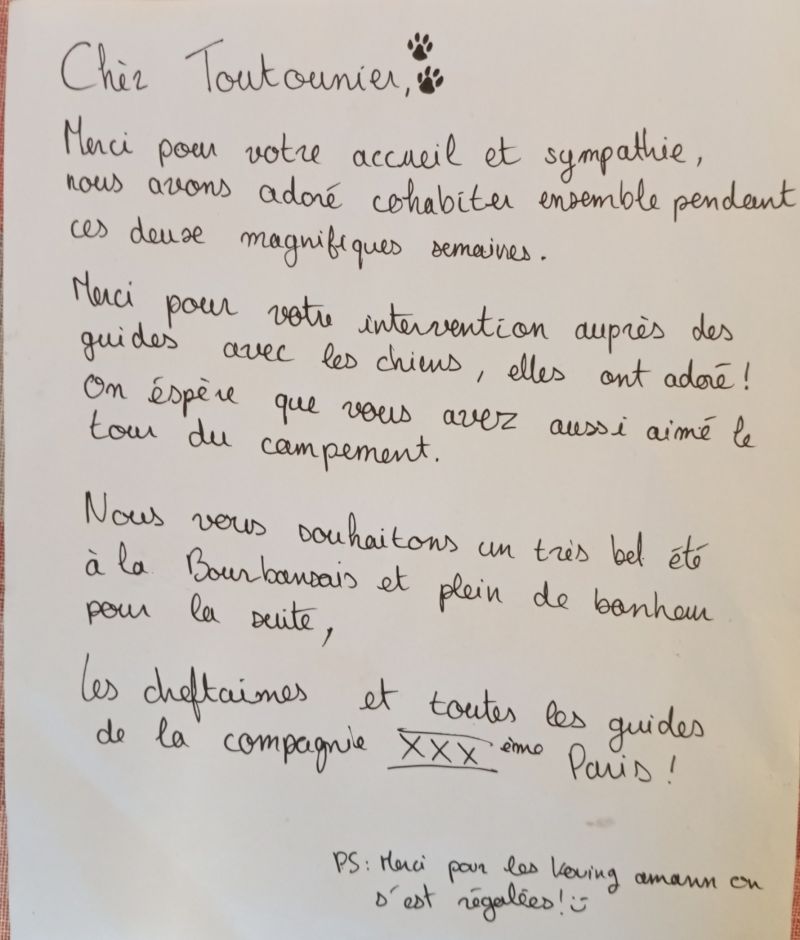 Chèr Toutounier,
Merci pour votre accueil et sympathie,
nous avons adoré cohabiter ensemble pendant
ces deux magnifiques semaines.
Merci pour votre intervention auprès des
guides avec les chiens, elles ont adoré !
On éspère que vous avez aussi aimé le
tour du campement.
Nous vous souhaitons un très bel été
à la Bourbansais et plein de bonheur
pour la suite,
Les cheftaines et toutes les guides
de la compagnie XXX ème Paris !
PS : Merci pour les kouing amann on
s'est régalées ! :)